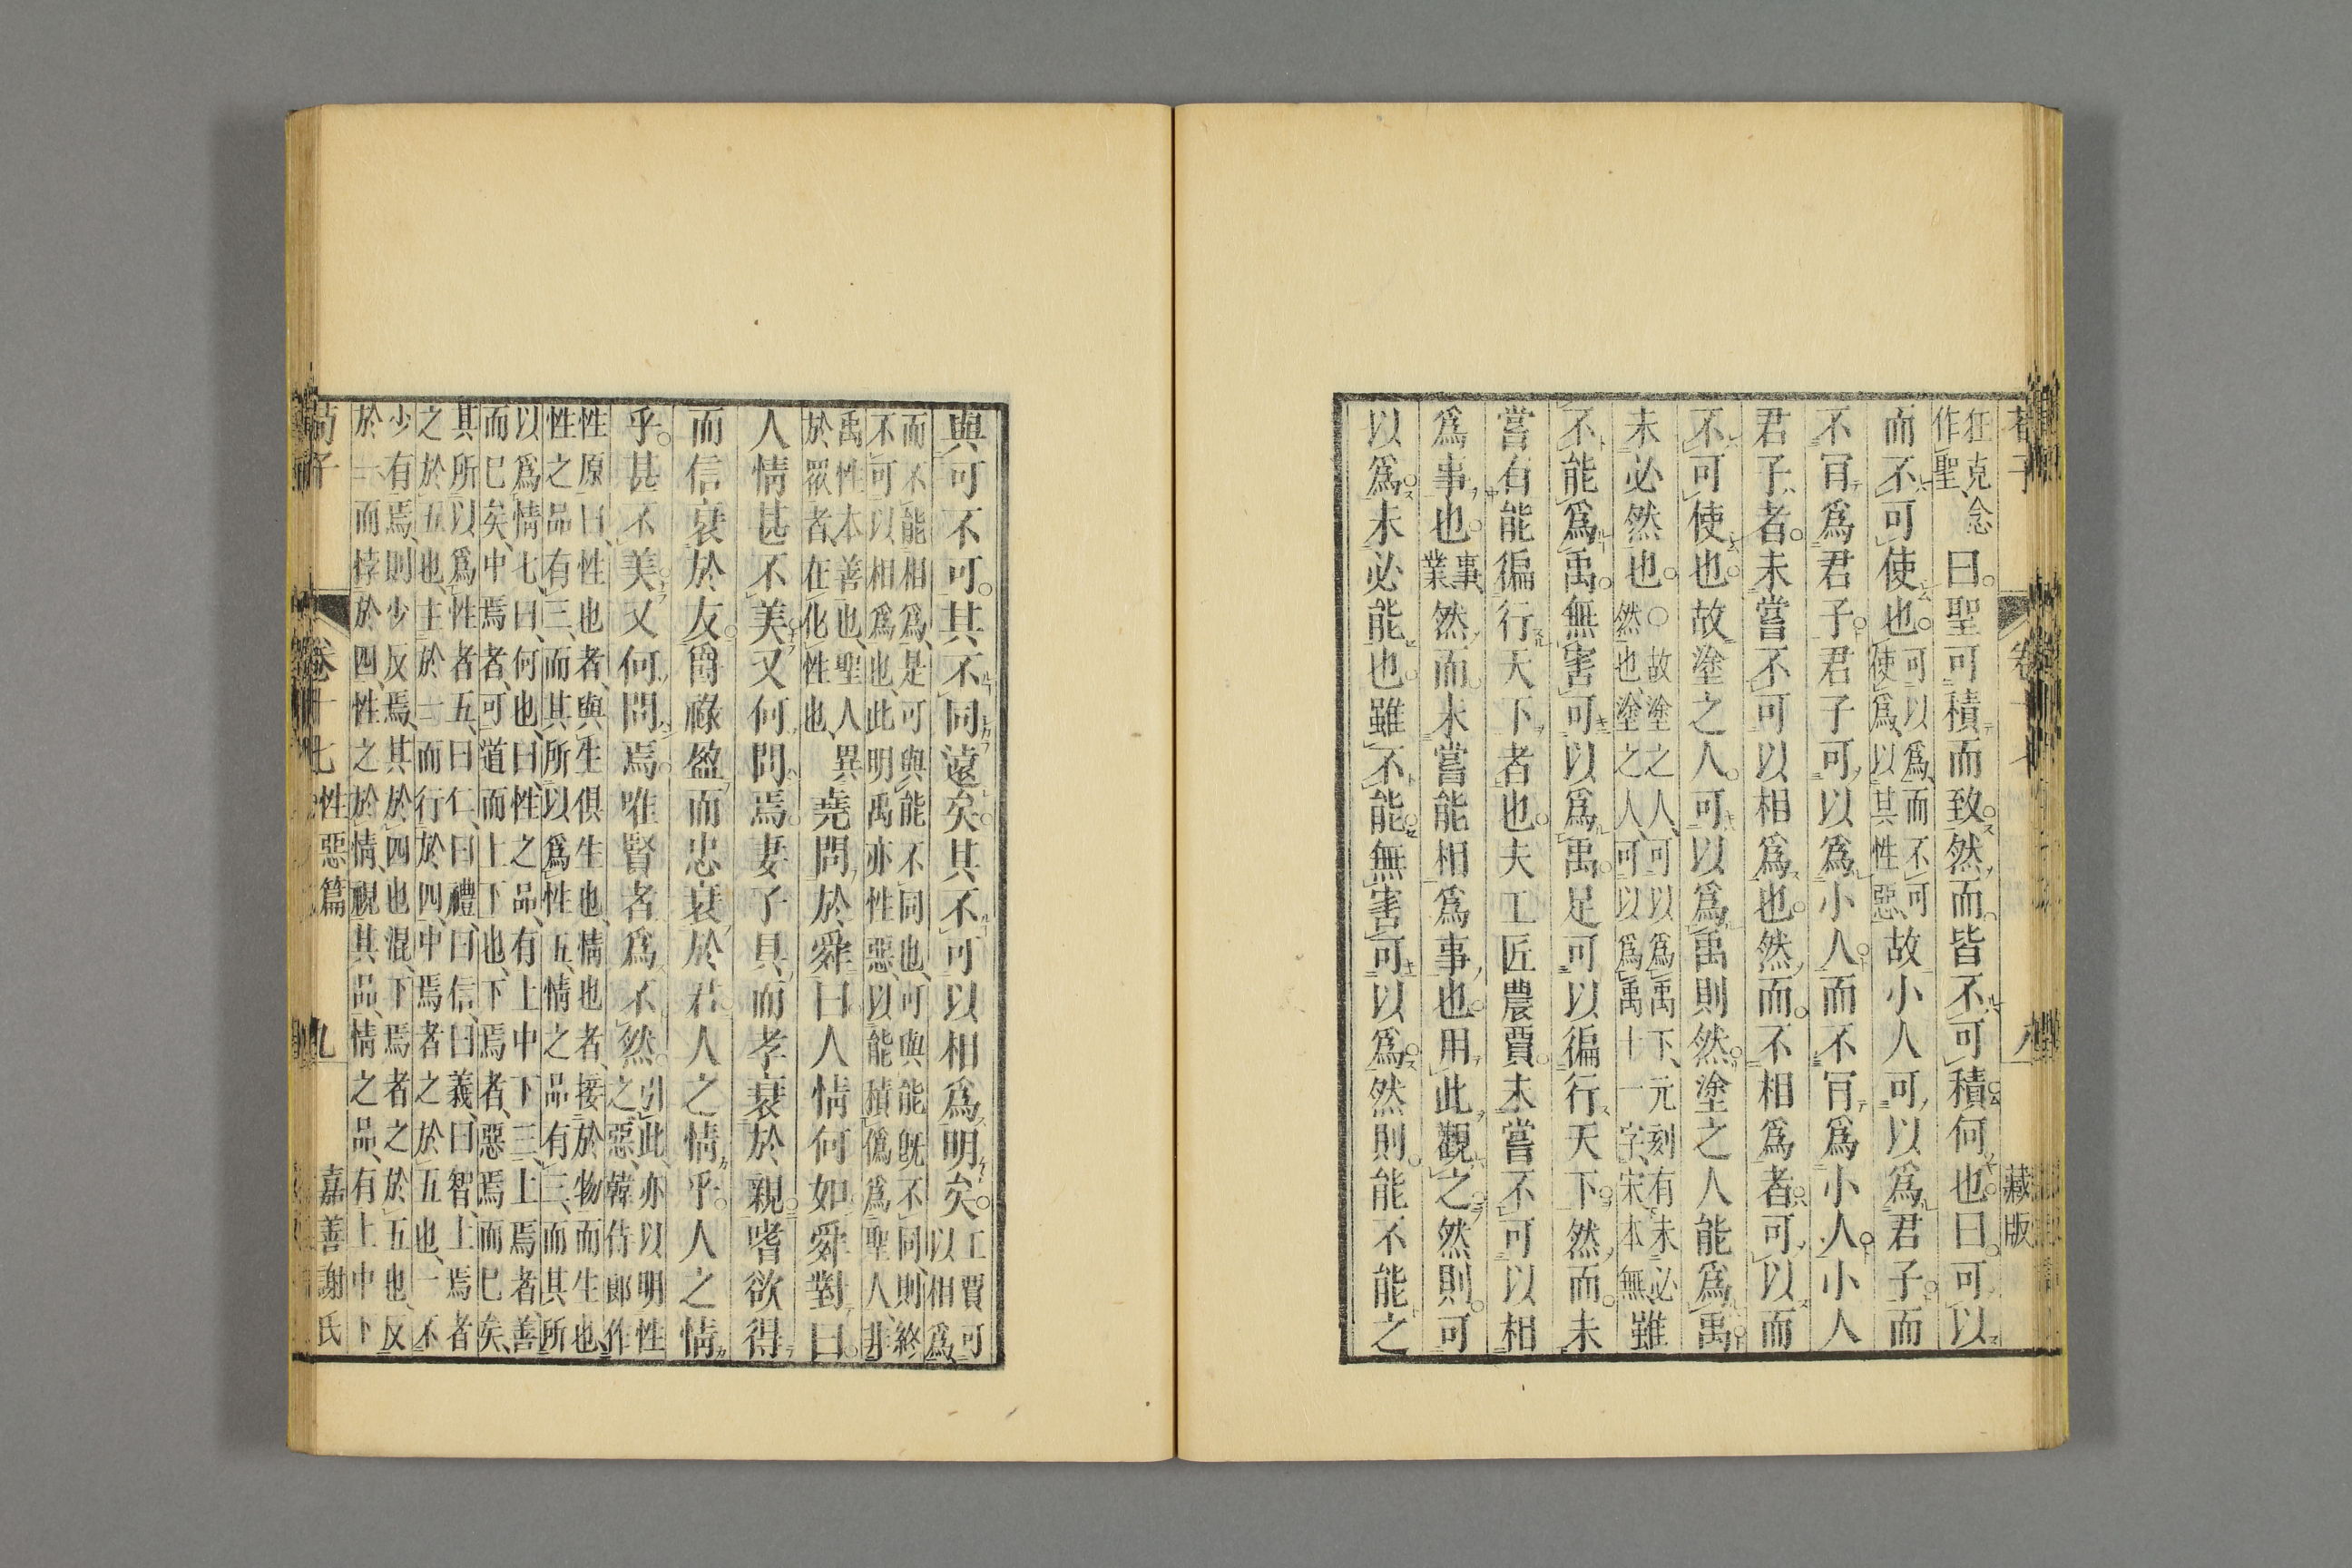 荀子 卷十七 八 藏版
狂克念
作聖 曰聖可積而致然而皆不可積何也曰可以
而不可使也 可以爲而不可
使爲以其性惡 故小人可以爲君子而
不肎爲君子君子可以爲小人而不肎爲小人小人
君子者未嘗不可以相爲也然而不相爲者可以而
不可使也故塗之人可以爲禹則然塗之人能爲禹
未必然也 ○故塗之人可以爲禹下元刻有未必
然也塗之人可以爲禹十一字宋本無 雖
不能爲禹無害可以爲禹足可以徧行天下然而未
嘗有能徧行天下者也夫工匠農賈未嘗不可以相
爲事也 事
業 然而未嘗能相爲事也用此觀之然則可
以爲未必能也雖不能無害可以爲然則能不能之
與可不可其不同遠矣其不可以相爲明矣 工賈可
以相爲
而不能相爲是可與能不同也可與能既不同則終
不可以相爲也此明禹亦性惡以能積僞爲聖人非
禹性本善也聖人異
於衆者在化性也 堯問於舜曰人情何如舜對曰
人情甚不美又何問焉妻子具而孝衰於親嗜欲得
而信衰於友爵祿盈而忠衰於君人之情乎人之情
乎甚不美又何問焉唯賢者爲不然 引此亦以明性
之惡韓侍郎作
性原曰性也者與生俱生也情也者接於物而生也
性之品有三而其所以爲性五情之品有三而其所
以爲情七曰何也曰性之品有上中下三上焉者善
而已矣中焉者可道而上下也下焉者惡焉而已矣
其所以爲性者五曰仁曰禮曰信曰義曰智上焉者
之於五也主於一而行於四中焉者之於五也一不
少有焉則少反焉其於四也混下焉者之於五也反
於一而悖於四性之於情視其品情之品有上中下
荀子 卷十七 性惡篇 九 嘉善謝氏